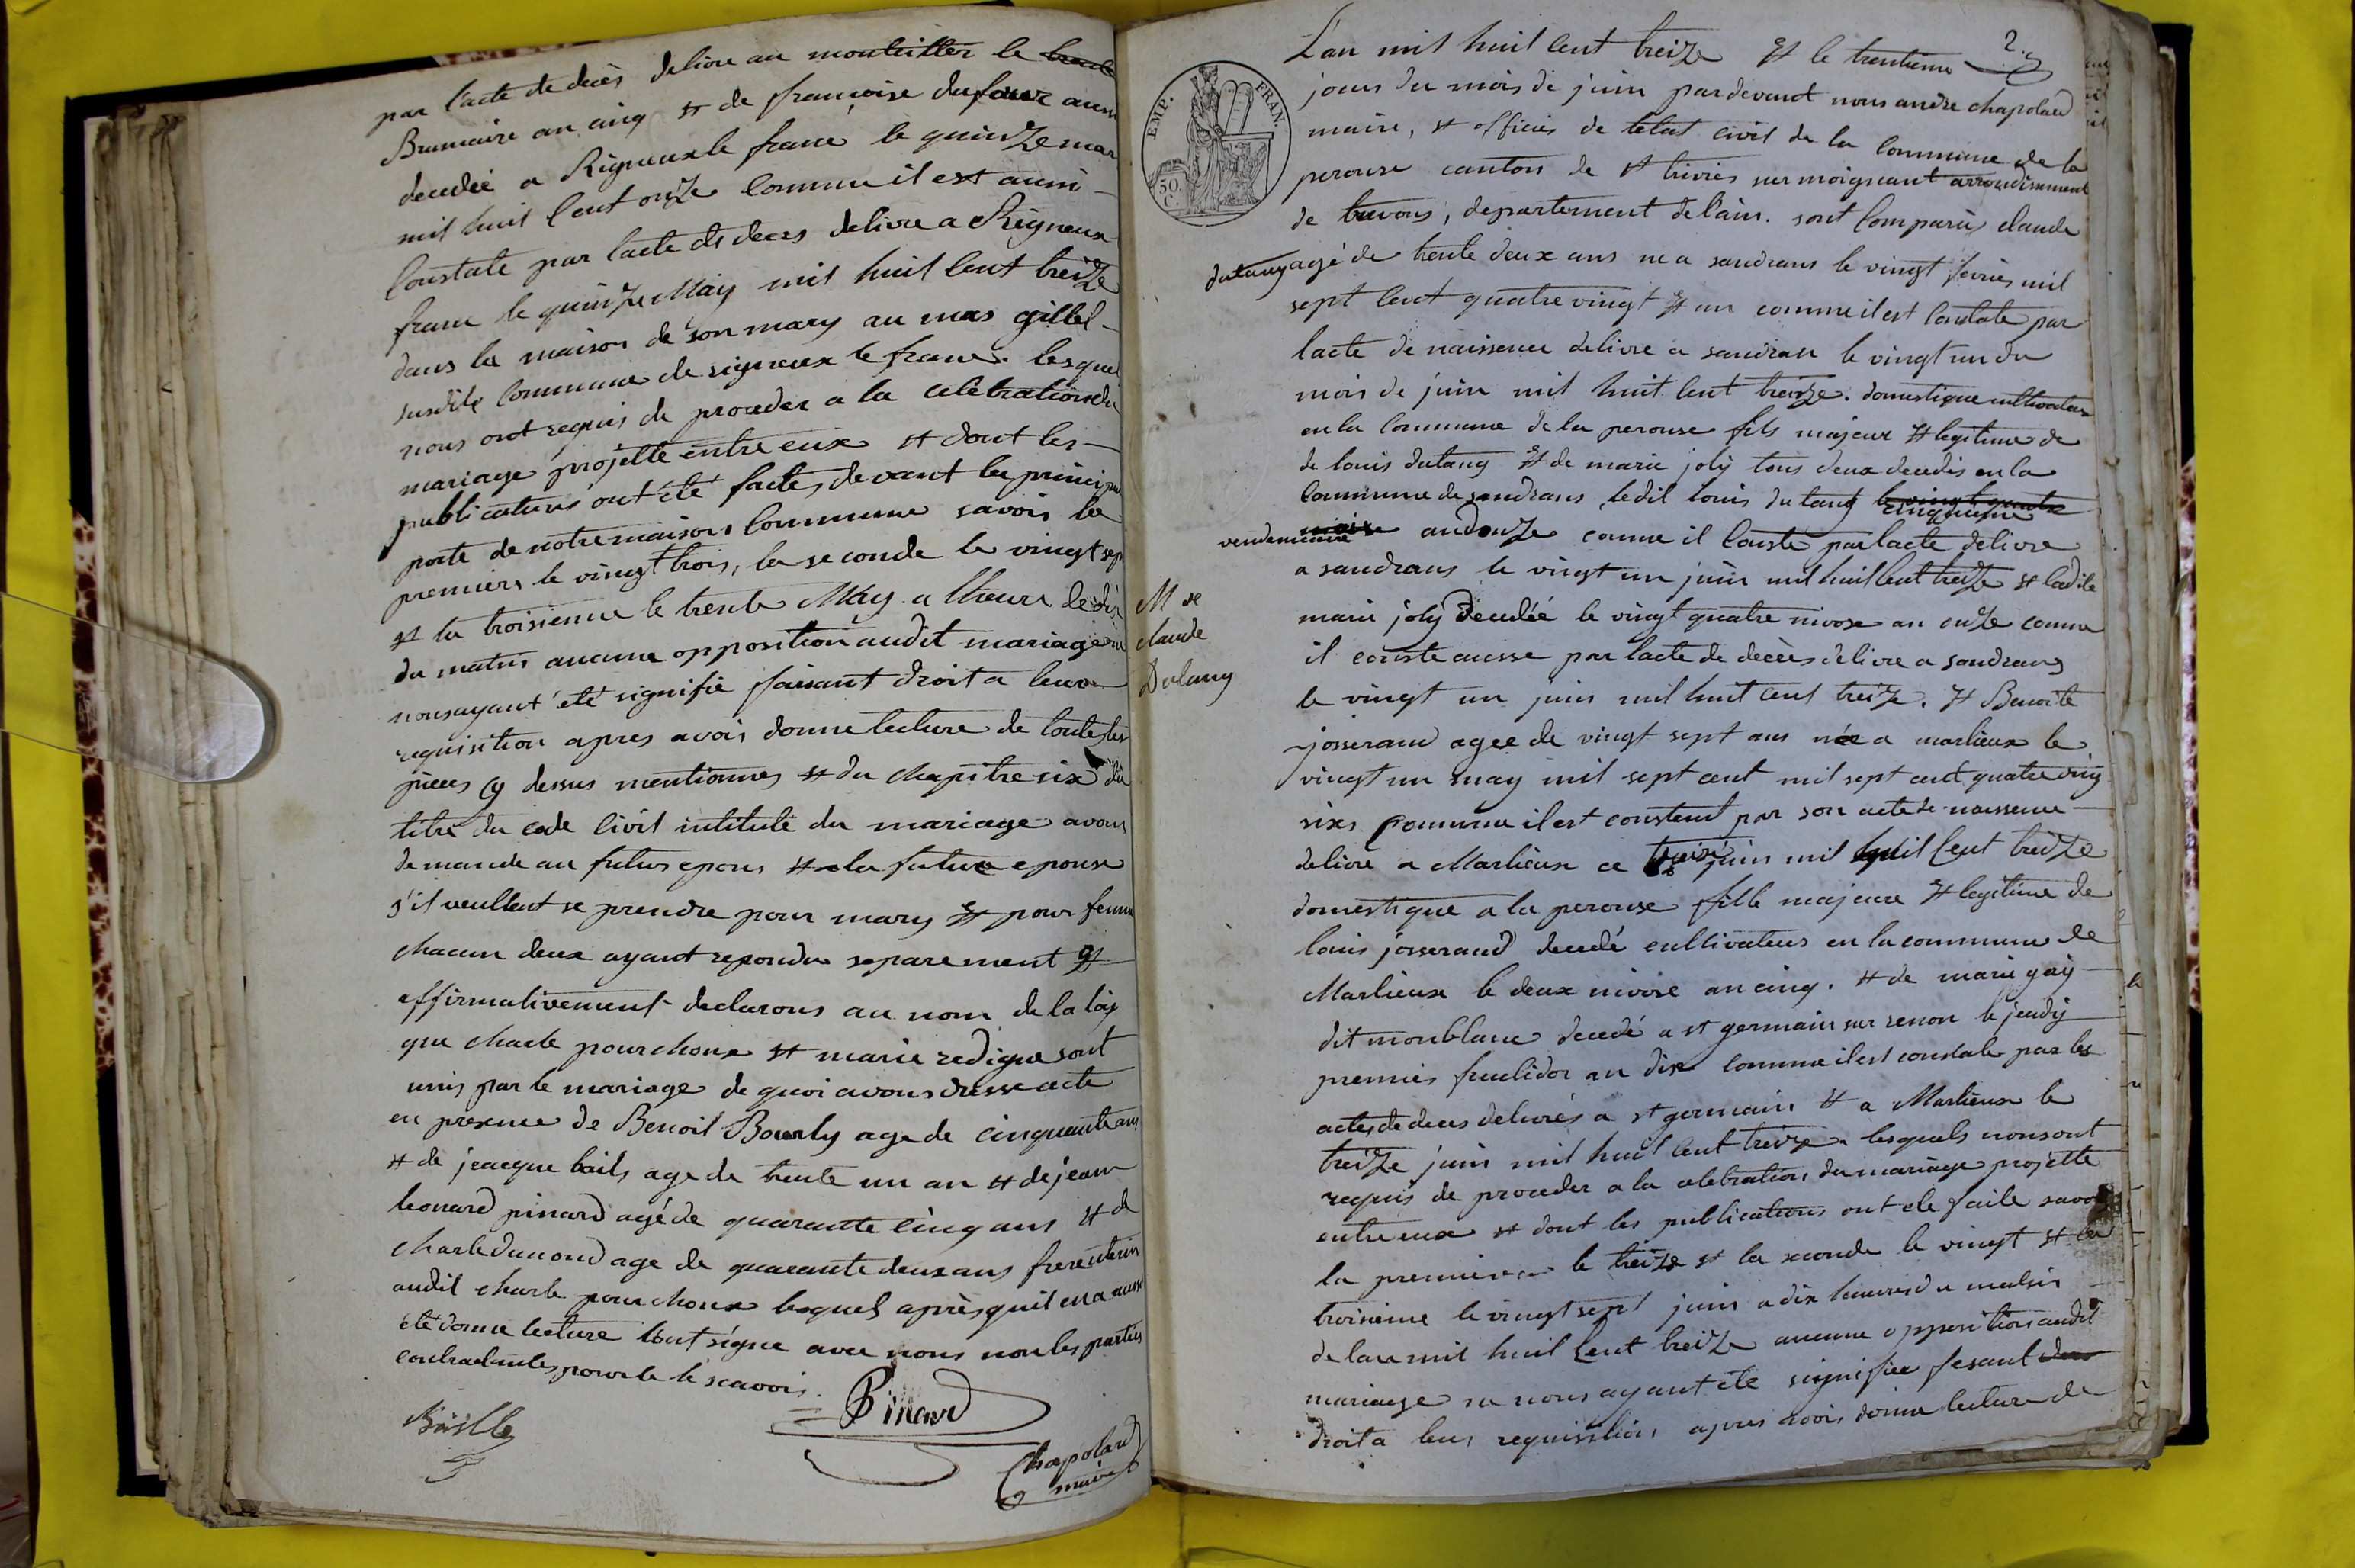 par l'acte de decès delivre au montcillier le trente
Brumaire an cinq et de françoise dufour aussi
decedée a Rigneux le franc le quinze mar
mil huit cent onze comme il est aussi
Constate par lacte de deces delivre a Rigneux
franc le quinze May mil huit cent treize
dans la maison de son mary au mas gillet
susdite commune de rigneux le franc. lesquel
nous ont requis de proceder a la celebration du
mariage projetté entre eux et dont les
publications ont été faites devant la principal
porte de notre maison commune savoir la
premiere le vingt trois, la seconde le vingt sept
et la troisieme le trente May a lheure de dix
du matin aucune opposition audit mariage ne
nous ayant été signifie faisant droit a leur
requisition apres avoir donne lecture de toutes les
pieces cy dessus mentionnes et du chapitre six du
titre du code civil intitulé du mariage avons
demande au futur epous et a la future epouse
s'il veullent se prendre pour mary et pour femme
chacun deux ayant repondu separement et
affirmativement declarons au nom de la loy
que charle pourchoux et marie redigue sont
unis par le mariage de quoi avons dresse acte
en presence de Benoit Bourly age de cinquante ans
et de jeacque bails age de trente un an et de jean
leonard pinard agé de quarante cinq ans et de
charle dunoud age de quarante deux ans frere uterin
audit charle pourchoux lesquels après quil en a aussi
été donne lecture l'ont signe avec nous non les parties
contractantes pour ne le scavoir.
Baille
Pinard
Chapolard
maire
2.
EMP. FRAN.
50 C.
L'an mil huit cent treize et le trentieme
jour du mois de juin pardevant nous andre chapolard
maire, et officier de letat civil de la commune de la
perouse canton de st trivier sur moignant arrondissement
de trevoux, departement de lain. sont comparus claude
dutang agé de trente deux ans ne a sandrans le vingt fevrier mil
sept cent quatre vingt et un comme il est constate par
lacte de naissence delivre a sandran le vingt un du
mois de juin mil huit cent treize. domestique cultivateur
en la commune de la perouse fils majeur et legitime de
de louis dutang et de marie joly tous deux decedes en la
commune de sandrans ledit louis dutang le vingt quatre
cinquieme
vendemiaire an douze comme il conste par lacte delivre
a sandrans le vingt un juin mil huit cent treize et ladite
marie joly decedée le vingt quatre nivose an onze comme
il conste ausse par lacte de decès delivre a sandrans
le vingt un juin mil huit cent treize. et Benoite
josserand agee de vingt sept ans née a marlieux le
vingt un may mil sept cent mil sept cent quatre ving
six, comme il est constent par son acte de naissence
delivre a Marlieux ce treize juin mil huit cent treize
domestique a la perouse fille majeure et legitime de
louis josserand decedé cultivateur en la commune de
Marlieux le deux nivose an cinq. et de marie gay
dit monblanc decedé a st germain sur renon le jeudy
premier fructidor an dix comme il est constate par les
actes de deces delivrés a st germain et a Marlieux le
treize juin mil huit cent treize. lesquels nous ont
requis de proceder a la celebration du mariage projette
entre eux et dont les publications ont ete faite savoir
la premiere le treize et la seconde le vingt et la
troisieme le vingt sept juin a dix heures du matin
de lan mil huit cent treize aucune opposition audit
mariage ne nous ayant été signifiee fesant
droit a leur requisition apres avoir donne lecture de
M de
claude
Dutang